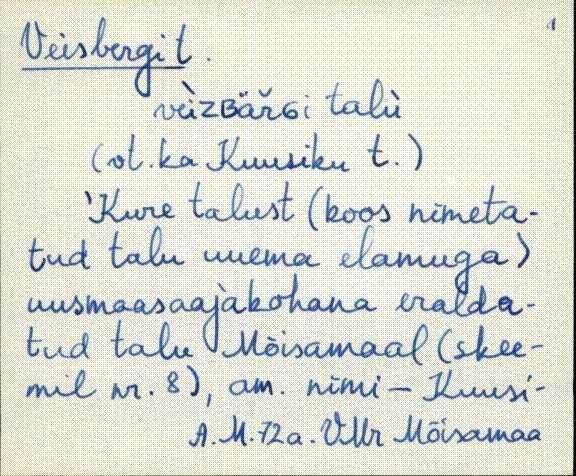 Veisbergi t.
vèizʙäř̆ɢi talù
(vt. ka Kuusiku t.)
'Kure talust (koos nimeta-
tud talu uuema elamuga)
uusmaasaajakohana eralda-
tud talu Mõisamaal (skee-
mil nr. 8), am. nimi – Kuusi-
A.M. 72 a. VMr Mõisamaa